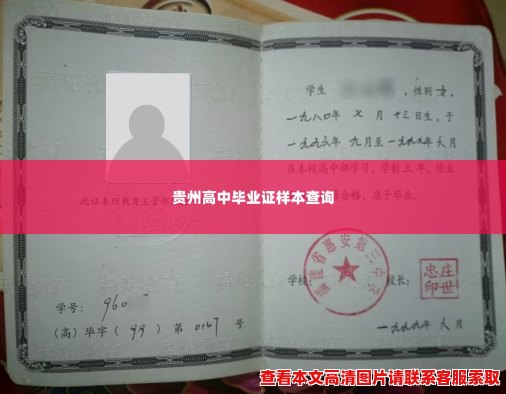 学生 ，性别女，
一九八〇年 七 月 十三日生，于
一九九六年 九月至一九九九年六月
在本校高中部学习，学制三年，修业
合格，准于毕业。
此证未经教育主管部
贵州高中毕业证样本查询
学校：
福建省惠安第三中学
校长：
庄世忠印
学号： 960
（高）毕字（ 99 ）第 0147 号
一九九九年 六 月
查看本文高清图片请联系客服索取